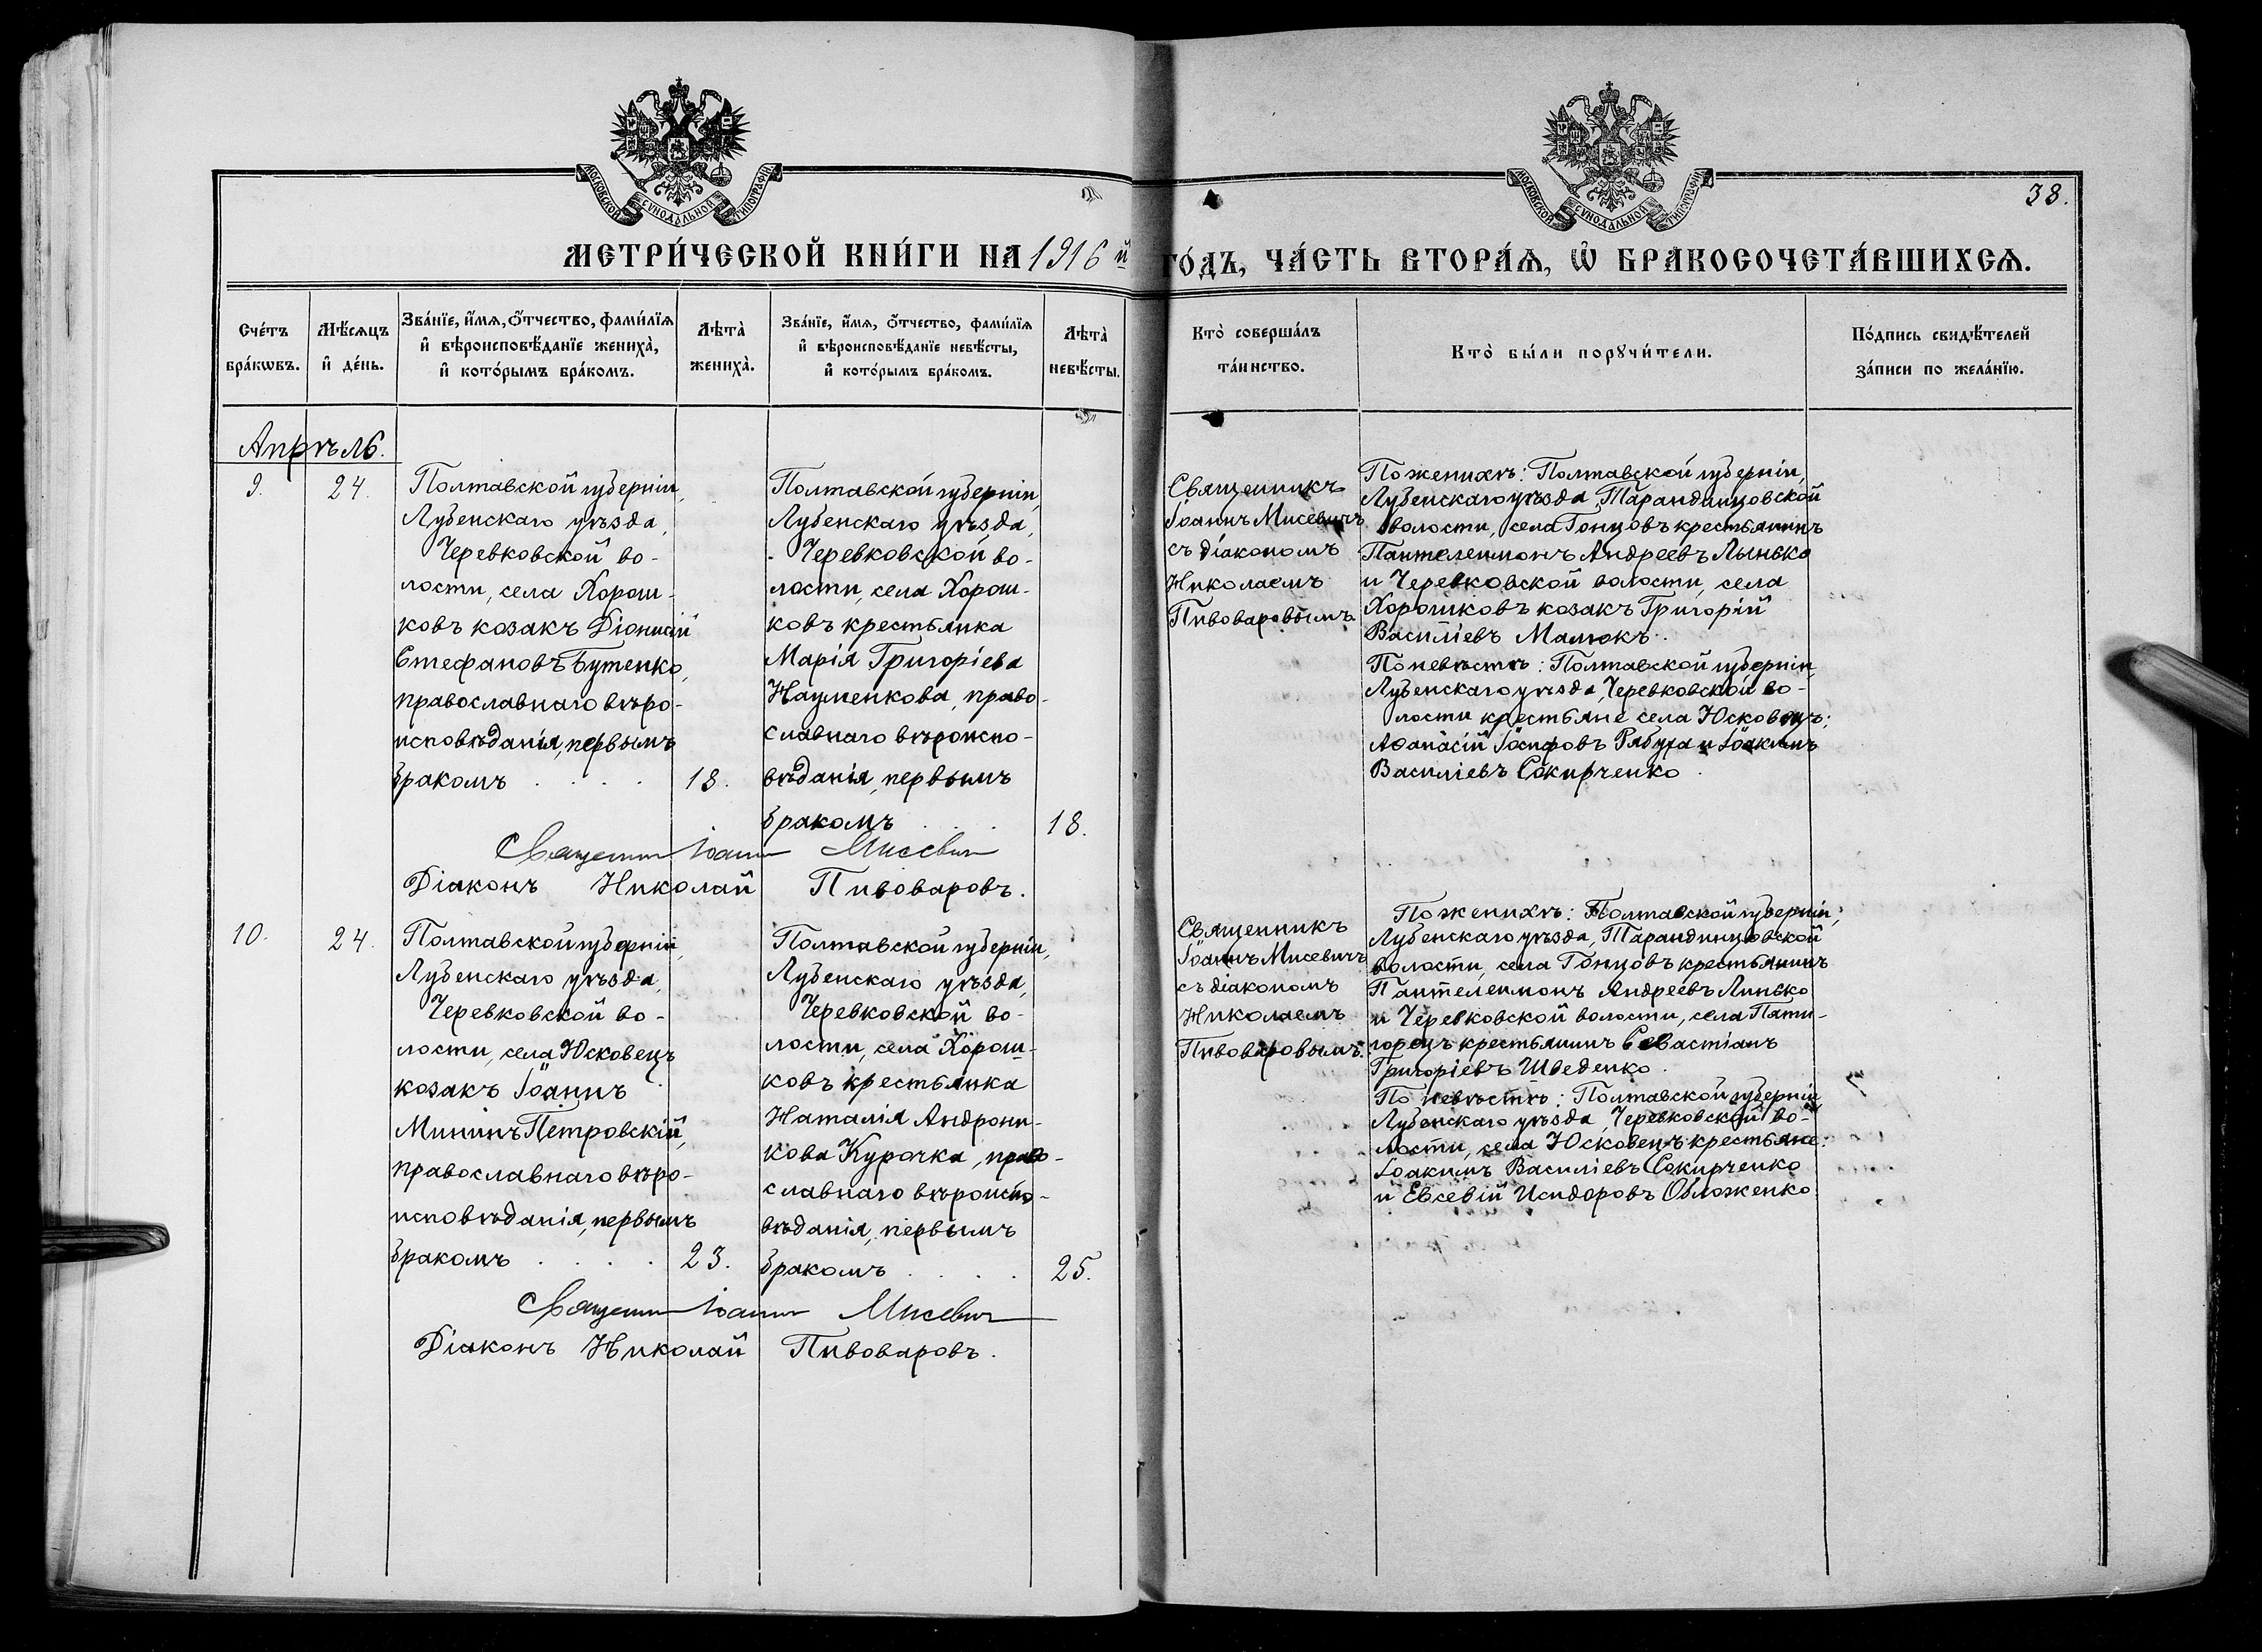 МОСКОВСКОЙ СѴНОДАЛЬНОЙ ТИПОГРАФІИ
МОСКОВСКОЙ СѴНОДАЛЬНОЙ ТИПОГРАФІИ
38.
МЕТРИ́ЧЕСКОЙ КНИ́ГИ НА 1916 й ГО́ДЪ, ЧА́СТЬ ВТОРА́Ѧ, Ѡ҆ БРАКОСОЧЕТА́ВШИХСѦ.
Сче́тъ
бра́кѡвъ.
Мѣ́сяцъ
и҆ де́нь.
Зва́нїе, и҆́мѧ, ѻ҆́тчество, фами́лїѧ
и҆ вѣроисповѣ́данїе жениха̀,
и҆ кото́рымъ бра́комъ.
Лѣта̀
жениха̀.
Зва́нїе, и҆́мѧ, ѻ҆́тчество, фами́лїѧ
и҆ вѣроисповѣ́данїе невѣ́сты,
и҆ кото́рымъ бра́комъ.
Лѣта̀
невѣ́сты.
Кто̀ соверша́лъ
та́инство.
Кто̀ бы́ли порꙋчи́тели.
По́дпись свидѣ́телей
за́писи по жела́нїю.
Апрѣль.
9.
24.
Полтавской губерніи,
Лубенскаго уѣзда,
Черевковской во-
лости, села Хорош-
ковъ козакъ Діонисій
Стефановъ Бутенко,
православнаго вѣро-
исповѣданія, первымъ
бракомъ . . . .
18.
Полтавской губерніи,
Лубенскаго уѣзда,
Черевковской во-
лости, села Хорош-
ковъ крестьянка
Марія Григоріева
Науменкова, право-
славнаго вѣроиспо-
вѣданія, первымъ
бракомъ . . .
18.
Священникъ
Іоаннъ Мисевичъ
съ діакономъ
Николаемъ
Пивоваровымъ.
По женихѣ: Полтавской губерніи,
Лубенскаго уѣзда, Тарандинцовской
волости, села Гонцовъ крестьянинъ
Пантелеимонъ Андреевъ Лынько
и Черевковской волости, села
Хорошковъ козакъ Григорій
Василіевъ Малюкъ.
По невѣстѣ: Полтавской губерніи,
Лубенскаго уѣзда, Черевковской во-
лости крестьяне села Юсковецъ:
Аѳанасій Іосифовъ Рябуха и Іоакимъ
Василіевъ Сокирченко.
Священник Іоанн Мисевич
Діаконъ Николай Пивоваровъ.
10.
24.
Полтавской губерніи,
Лубенскаго уѣзда,
Черевковской во-
лости, села Юсковецъ
козакъ Іоаннъ
Мининъ Петровскій,
православнаго вѣро-
исповѣданія, первымъ
бракомъ . . . .
23.
Полтавской губерніи,
Лубенскаго уѣзда,
Черевковской во-
лости, села Хорош-
ковъ крестьянка
Наталія Андрони-
кова Курочка, право-
славнаго вѣроиспо-
вѣданія, первымъ
бракомъ . . . .
25.
Священникъ
Іоаннъ Мисевичъ
съ діакономъ
Николаемъ
Пивоваровымъ.
По женихѣ: Полтавской губерніи,
Лубенскаго уѣзда, Тарандинцовской
волости, села Гонцовъ крестьянинъ
Пантелеимонъ Андреевъ Линько
и Черевковской волости, села Пяти-
горецъ крестьянинъ Севастіанъ
Григоріевъ Шведенко.
По невѣстѣ: Полтавской губерніи
Лубенскаго уѣзда, Черевковской во-
лости, села Юсковецъ крестьяне:
Іоакимъ Василіевъ Сокирченко
и Евсевій Исидоровъ Обложенко.
Священник Іоанн Мисевич
Діаконъ Николай Пивоваровъ.